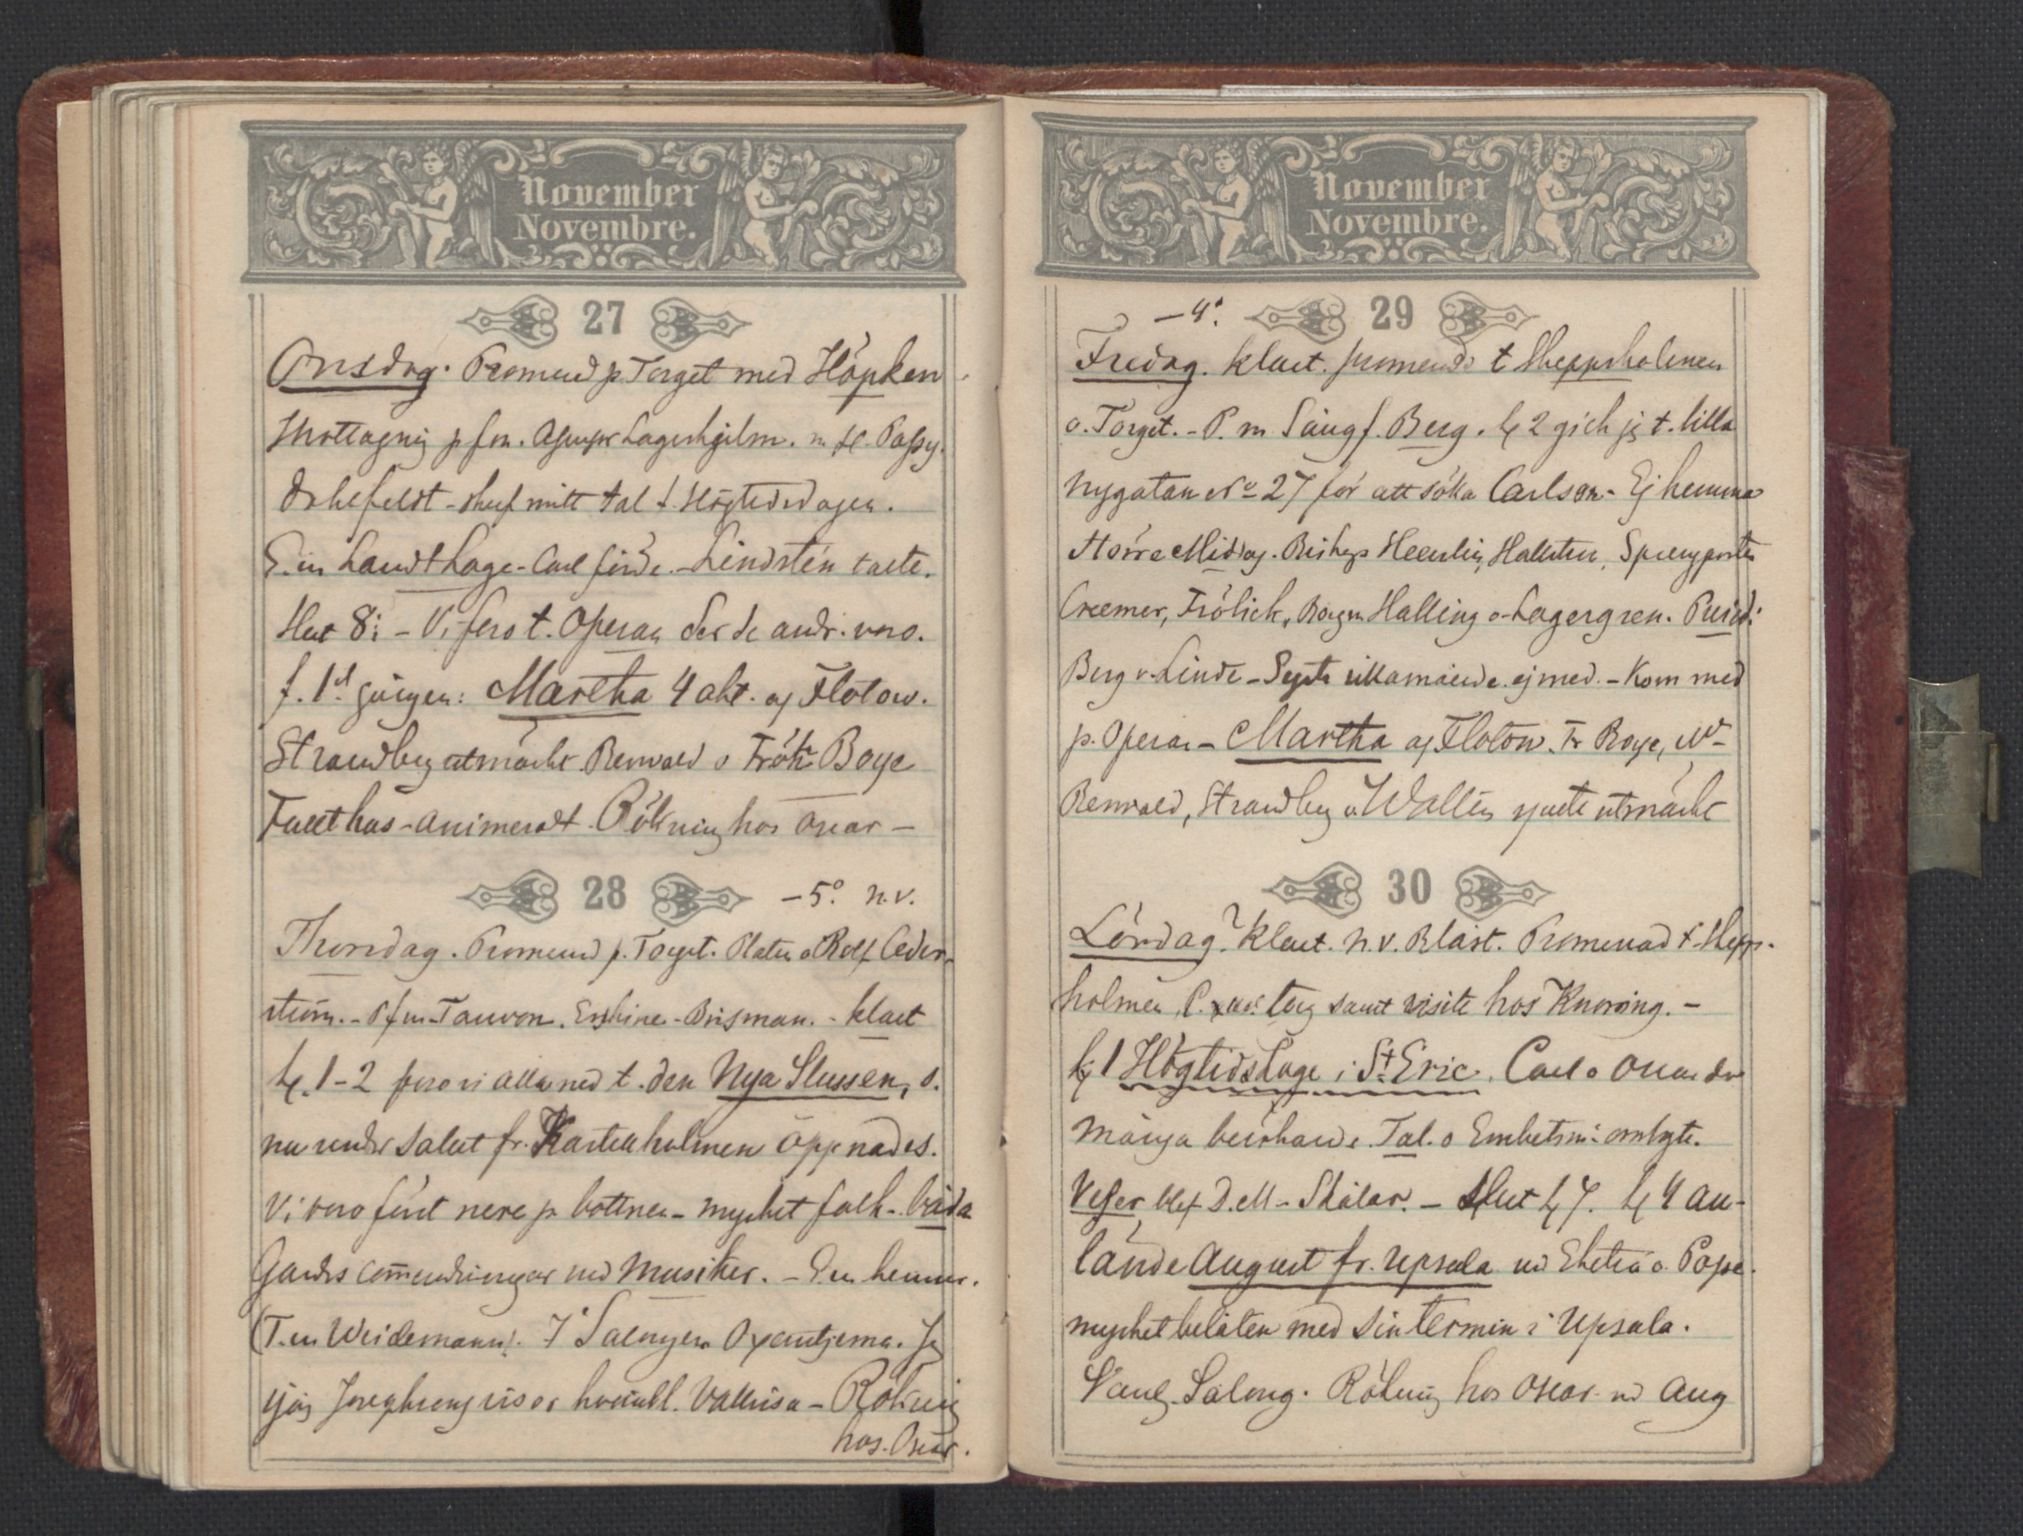 November
Novembre.
27
Onsdag. Promend p Torget med Höpken
Mottagnig p fm. Lagerhjelm. m fl. Passy.
Dohlfeldt - skref mitt tal t. Högtidsdagen.
E. m Landtloge - Carl förde. - Lindstén talte.
Slut 8; - Vi foro t. Operan der de andr. voro.
f. 1st gången: Martha 4 akt. af Flotow.
Strandberg utmärkt Renvald o Frök Boye
Fullt hus - animeradt. Rökning hos Oscar -
28 -5° n.v.
Thorsdag. Promend p. Torget. Platen o Rolf Ceder-
ström. - P fm - Tauvon. Erskine - Brisman. - klart
kl. 1-2 foro vi alla ned t. den Nya Slussen, s.
nu under salut fr. Kastellholmen öppnades.
Vi voro först nere p bottnen - mycket folk - båda
Gardes commenderingar med Musiker. - E m hemma.
(T. m Weidemann). I Salongen Oxenstjerna. Jag
sjöng visor Vallvisa - Rökning
hos. Oscar.
November
Novembre.
-4°. 29
Fredag. klart. promend t Skeppsholmen
o. Torget. - P. m Sångf. Berg. kl 2 gick jg t. lilla
Nygatan No 27 för att söka Carlson - Ej hemma
Större Middag. Biskop Heurlin, Hallström, Sprengporten
Creemer, Frölich, Borgm Halling o Lagergren. Presid:
Berg v. Linde - Sofie illamående ej med. - Kom med
p. Operan - Martha af Flotow. Fr Boye, Mr
Renvald, Strandberg o Wallin spelte utmärkt
30
Lördag. Klart. n.v. Blåst. Promenad t Skepps-
holmen, C. torg samt visite hos Knorring. -
kl 1 Högtidsloge i St Eric. Carl o Oscar der
många beröhande. Tal. o Embetsm: ombyte.
Vesser blef D. M - Skålar. - Slut kl 7. kl 4 an-
lände August fr. Upsala m Ehstrõ o. Pope.
mycket belåten med sin termin i Upsala.
Vanl. Salong. Rökning hos Oscar m Aug